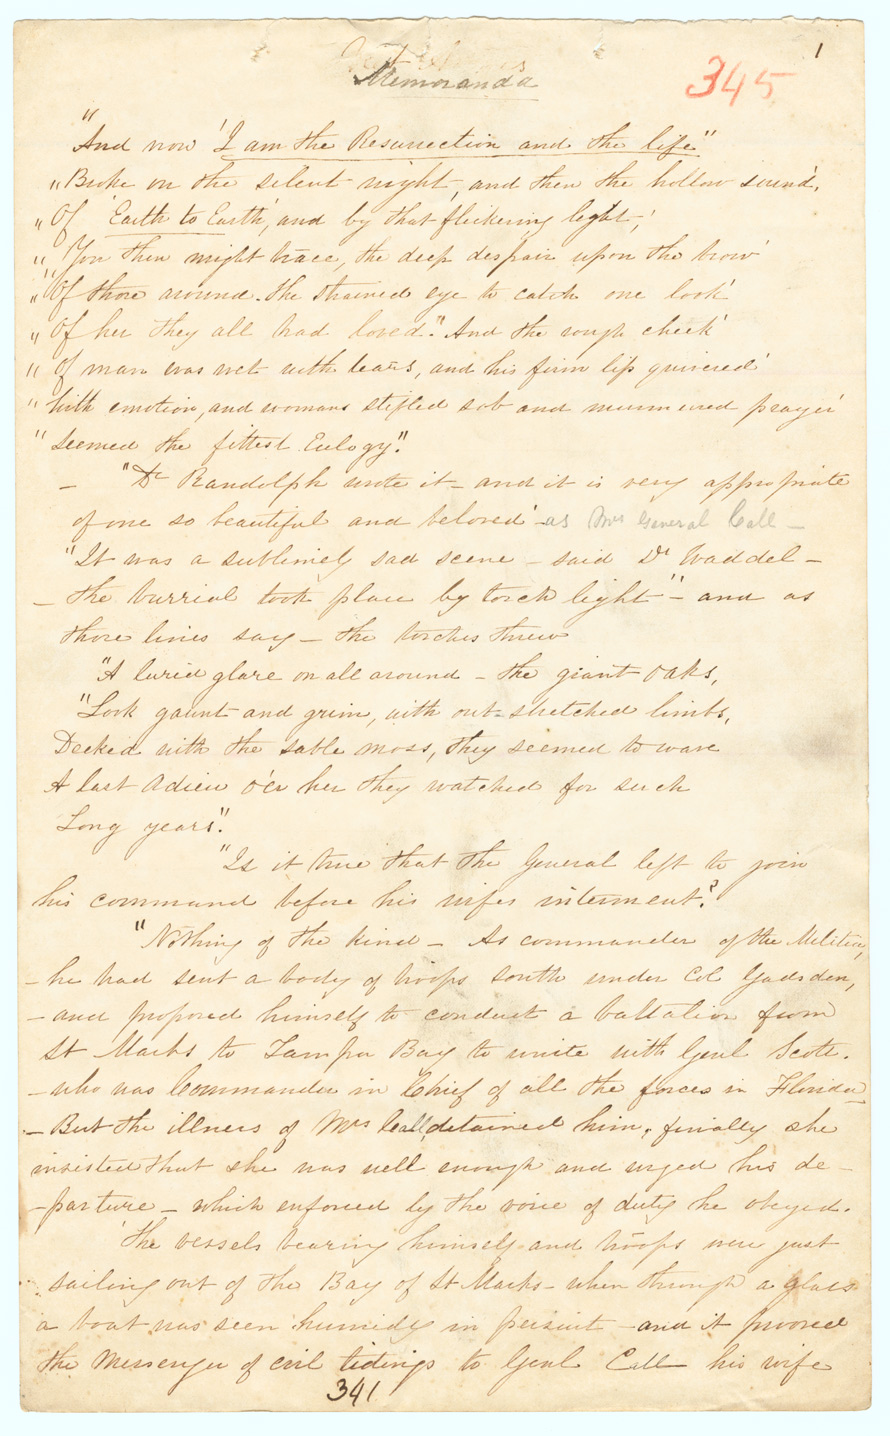 1
Memoranda
345
"And now 'I am the Resurrection and the life"
"Broke on the silent night, and then the hollow sound,
"Of 'Earth to Earth', and by that flickering light,'
"You then might trace, the deep despair upon the brow'
"Of those around. The strained eye to catch one look'
"Of her they all had loved". And the rough cheek'
"Of man was wet with tears, and his firm lip quivered'
"With emotion, and womans stifled sob and murmured prayer'
"Seemed the fittest Eulogy".
— "Dr Randolph wrote it — and it is very appropriate
of one so beautiful and beloved' — as Mrs General Call —
"It was a sublimely sad scene — said Dr Waddel —
— The burrial took place by torch light" — and as
those lines say — the torches threw
"A lurid glare on all around — the giant oaks,
"Look gaunt and grim, with out-stretched limbs,
Decked with the sable moss, they seemed to wave
A last Adieu o'er her they watched for such
Long years".
"Is it true that the General left to join
his command before his wifes interment?
"Nothing of the kind — As commander of the Militia,
— he had sent a body of troops south under Col Gadsden,
— and proposed himself to conduct a battalion from
St Marks to Tampa Bay to unite with Genl Scott.
— who was Commander in Chief of all the forces in Florida —
— But the illness of Mrs Call, detained him, finally she
insisted that she was well enough and urged his de-
-parture — which enforced by the voice of duty he obeyed.
'The vessels bearing himself and troops were just
sailing out of the Bay of St Marks — when through a glass
a boat was seen huriedly in persuit — and it prooved
the Messenger of evil tidings to Genl Call his wife
341